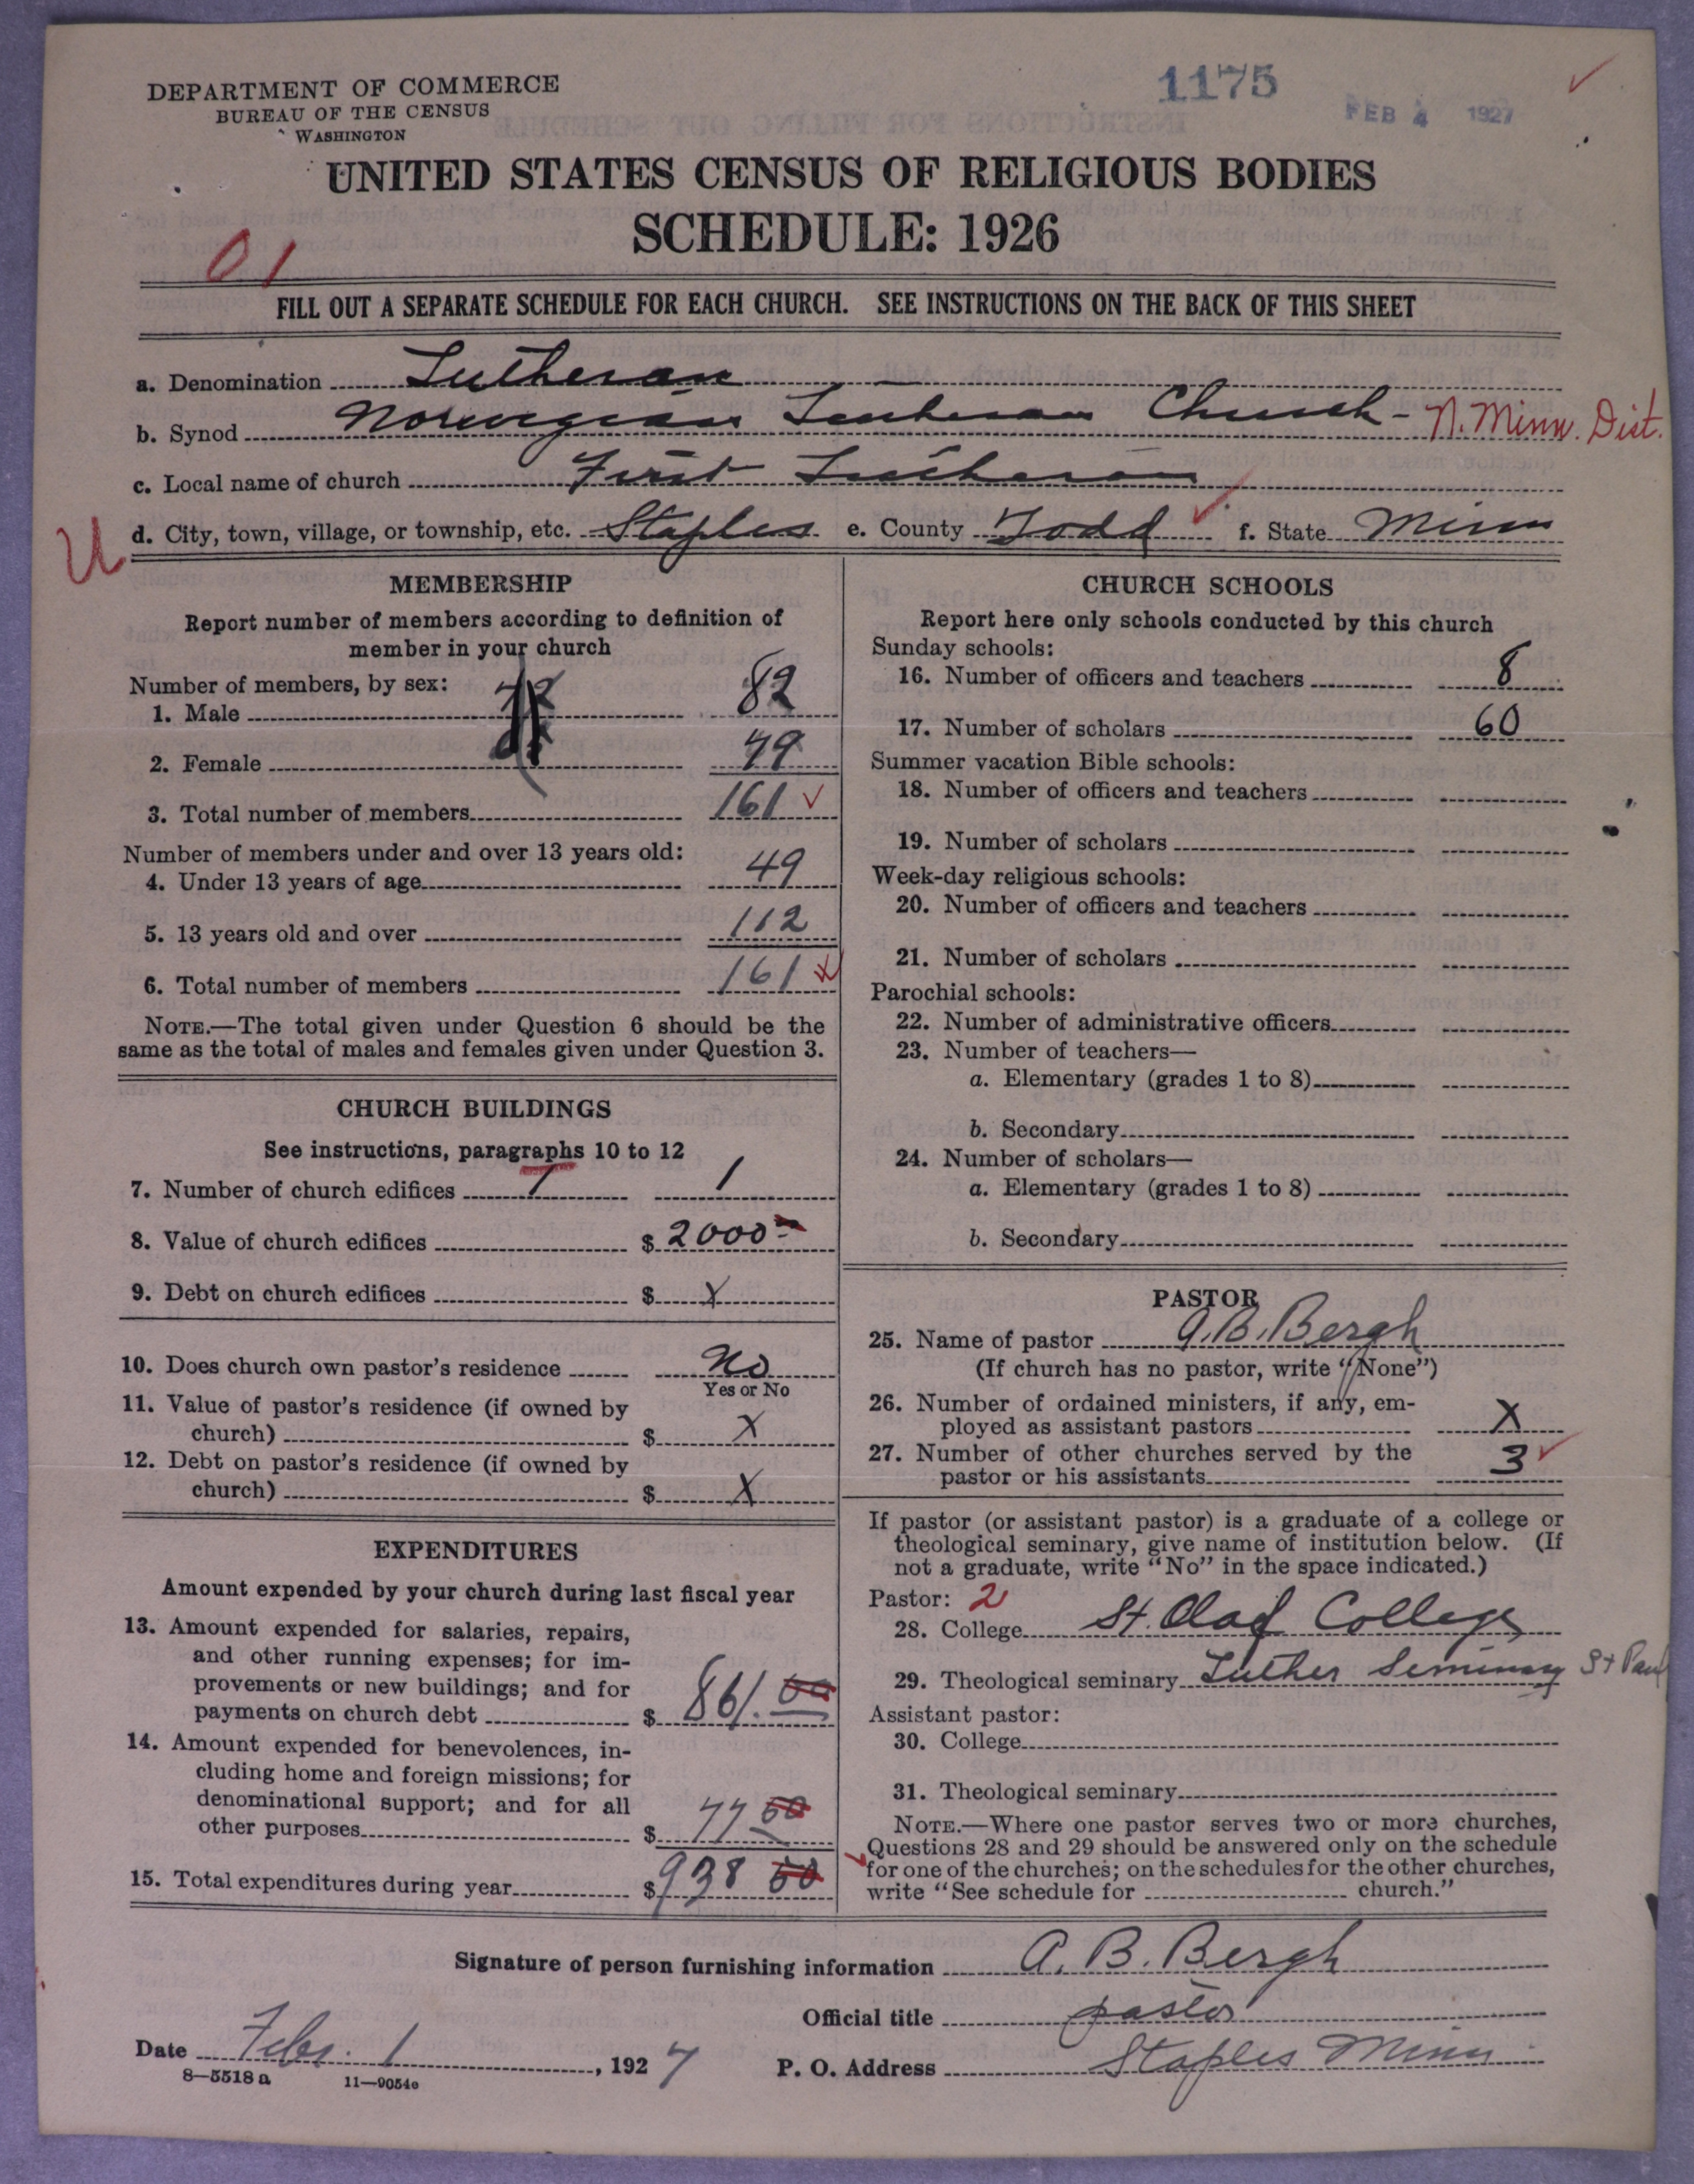 DEPARTMENT OF COMMERCE
BUREAU OF THE CENSUS
WASHINGTON
1175
FEB 4 1927
UNITED STATES CENSUS OF RELIGIOUS BODIES
SCHEDULE: 1926
01
FILL OUT A SEPARATE SCHEDULE FOR EACH CHURCH. SEE INSTRUCTIONS ON THE BACK OF THIS SHEET
a. Denomination Lutheran
b. Synod Norwegian Lutheran Church - N. Minn. Dist.
c. Local name of church First Lutheran
U
d. City, town, village, or township, etc. Staples e. County Todd f. State Minn
MEMBERSHIP
Report number of members according to definition of
member in your church
Number of members, by sex:
1. Male 82
2. Female 79
3. Total number of members 161
Number of members under and over 13 years old:
4. Under 13 years of age 49
5. 13 years old and over 112
6. Total number of members 161
NOTE.—The total given under Question 6 should be the
same as the total of males and females given under Question 3.
CHURCH BUILDINGS
See instructions, paragraphs 10 to 12
7. Number of church edifices 1 1
8. Value of church edifices $ 2000
9. Debt on church edifices $ X
10. Does church own pastor's residence No
Yes or No
11. Value of pastor's residence (if owned by
church) $ X
12. Debt on pastor's residence (if owned by
church) $ X
EXPENDITURES
Amount expended by your church during last fiscal year
13. Amount expended for salaries, repairs,
and other running expenses; for im-
provements or new buildings; and for
payments on church debt $ 861.00
14. Amount expended for benevolences, in-
cluding home and foreign missions; for
denominational support; and for all
other purposes $ 77 50
15. Total expenditures during year $ 938 50
CHURCH SCHOOLS
Report here only schools conducted by this church
Sunday schools:
16. Number of officers and teachers 8
17. Number of scholars 60
Summer vacation Bible schools:
18. Number of officers and teachers
19. Number of scholars
Week-day religious schools:
20. Number of officers and teachers
21. Number of scholars
Parochial schools:
22. Number of administrative officers
23. Number of teachers—
a. Elementary (grades 1 to 8)
b. Secondary
24. Number of scholars—
a. Elementary (grades 1 to 8)
b. Secondary
PASTOR
25. Name of pastor A. B. Bergh
(If church has no pastor, write "None")
26. Number of ordained ministers, if any, em-
ployed as assistant pastors X
27. Number of other churches served by the
pastor or his assistants 3
If pastor (or assistant pastor) is a graduate of a college or
theological seminary, give name of institution below. (If
not a graduate, write "No" in the space indicated.)
Pastor: 2
28. College St. Olaf College
29. Theological seminary Luther Seminary St Paul
Assistant pastor:
30. College
31. Theological seminary
NOTE.—Where one pastor serves two or more churches,
Questions 28 and 29 should be answered only on the schedule
for one of the churches; on the schedules for the other churches,
write "See schedule for church."
Signature of person furnishing information A. B. Bergh
Official title pastor
Date Febr. 1, 1927 P. O. Address Staples Minn
8—5518 a 11—9054e